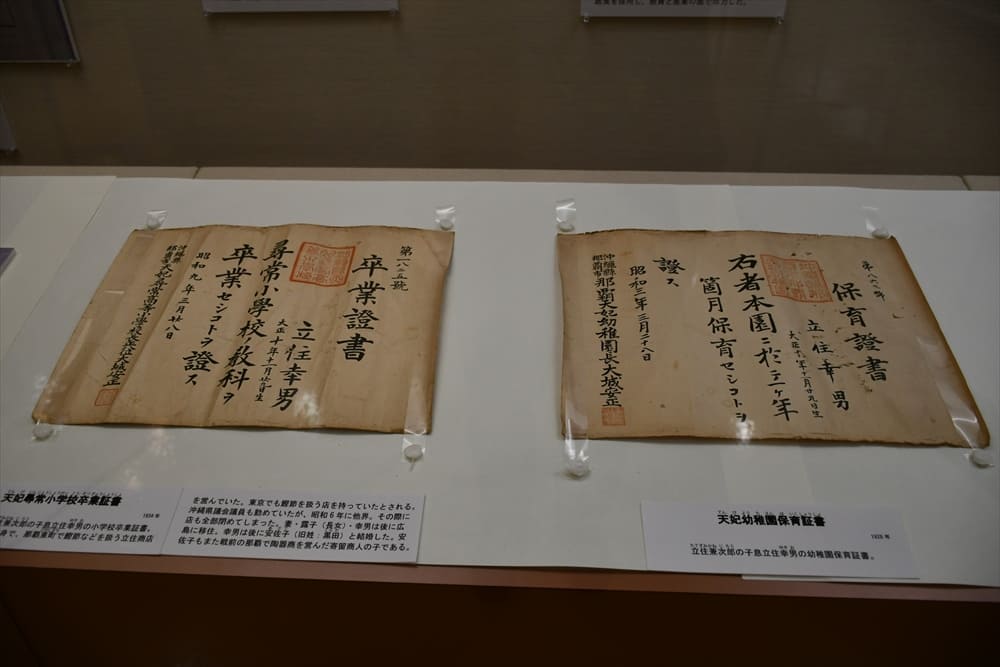 第一八二五號
卒業證書
立住幸男
大正十年十一月廿九日生
尋常小學校ノ教科ヲ
卒業セシコトヲ證ス
昭和九年三月廿八日
保育證書
立住幸男
大正十年十一月廿九日生
右者本園ニ於テ一ヶ年
箇月保育セシコトヲ
證ス
昭和三年三月二十八日
沖繩縣
那覇市那覇天妃幼稚園長大城安正
天妃尋常小学校卒業証書
1934 年
兼次郎の子息立住幸男の小学校卒業証書。
身で、那覇東町で鰹節などを扱う立住商店
を営んでいた。東京でも鰹節を扱う店を持っていたとされる。
沖縄県議会議員も勤めていたが、昭和6年に他界。その際に
店も全部閉めてしまった。妻・露子（長女）・幸男は後に広
島に移住。幸男は後に安佐子（旧姓：黒田）と結婚した。安
佐子もまた戦前の那覇で陶器商を営んだ寄留商人の子である。
天妃幼稚園保育証書
1928 年
立住兼次郎の子息立住幸男の幼稚園保育証書。